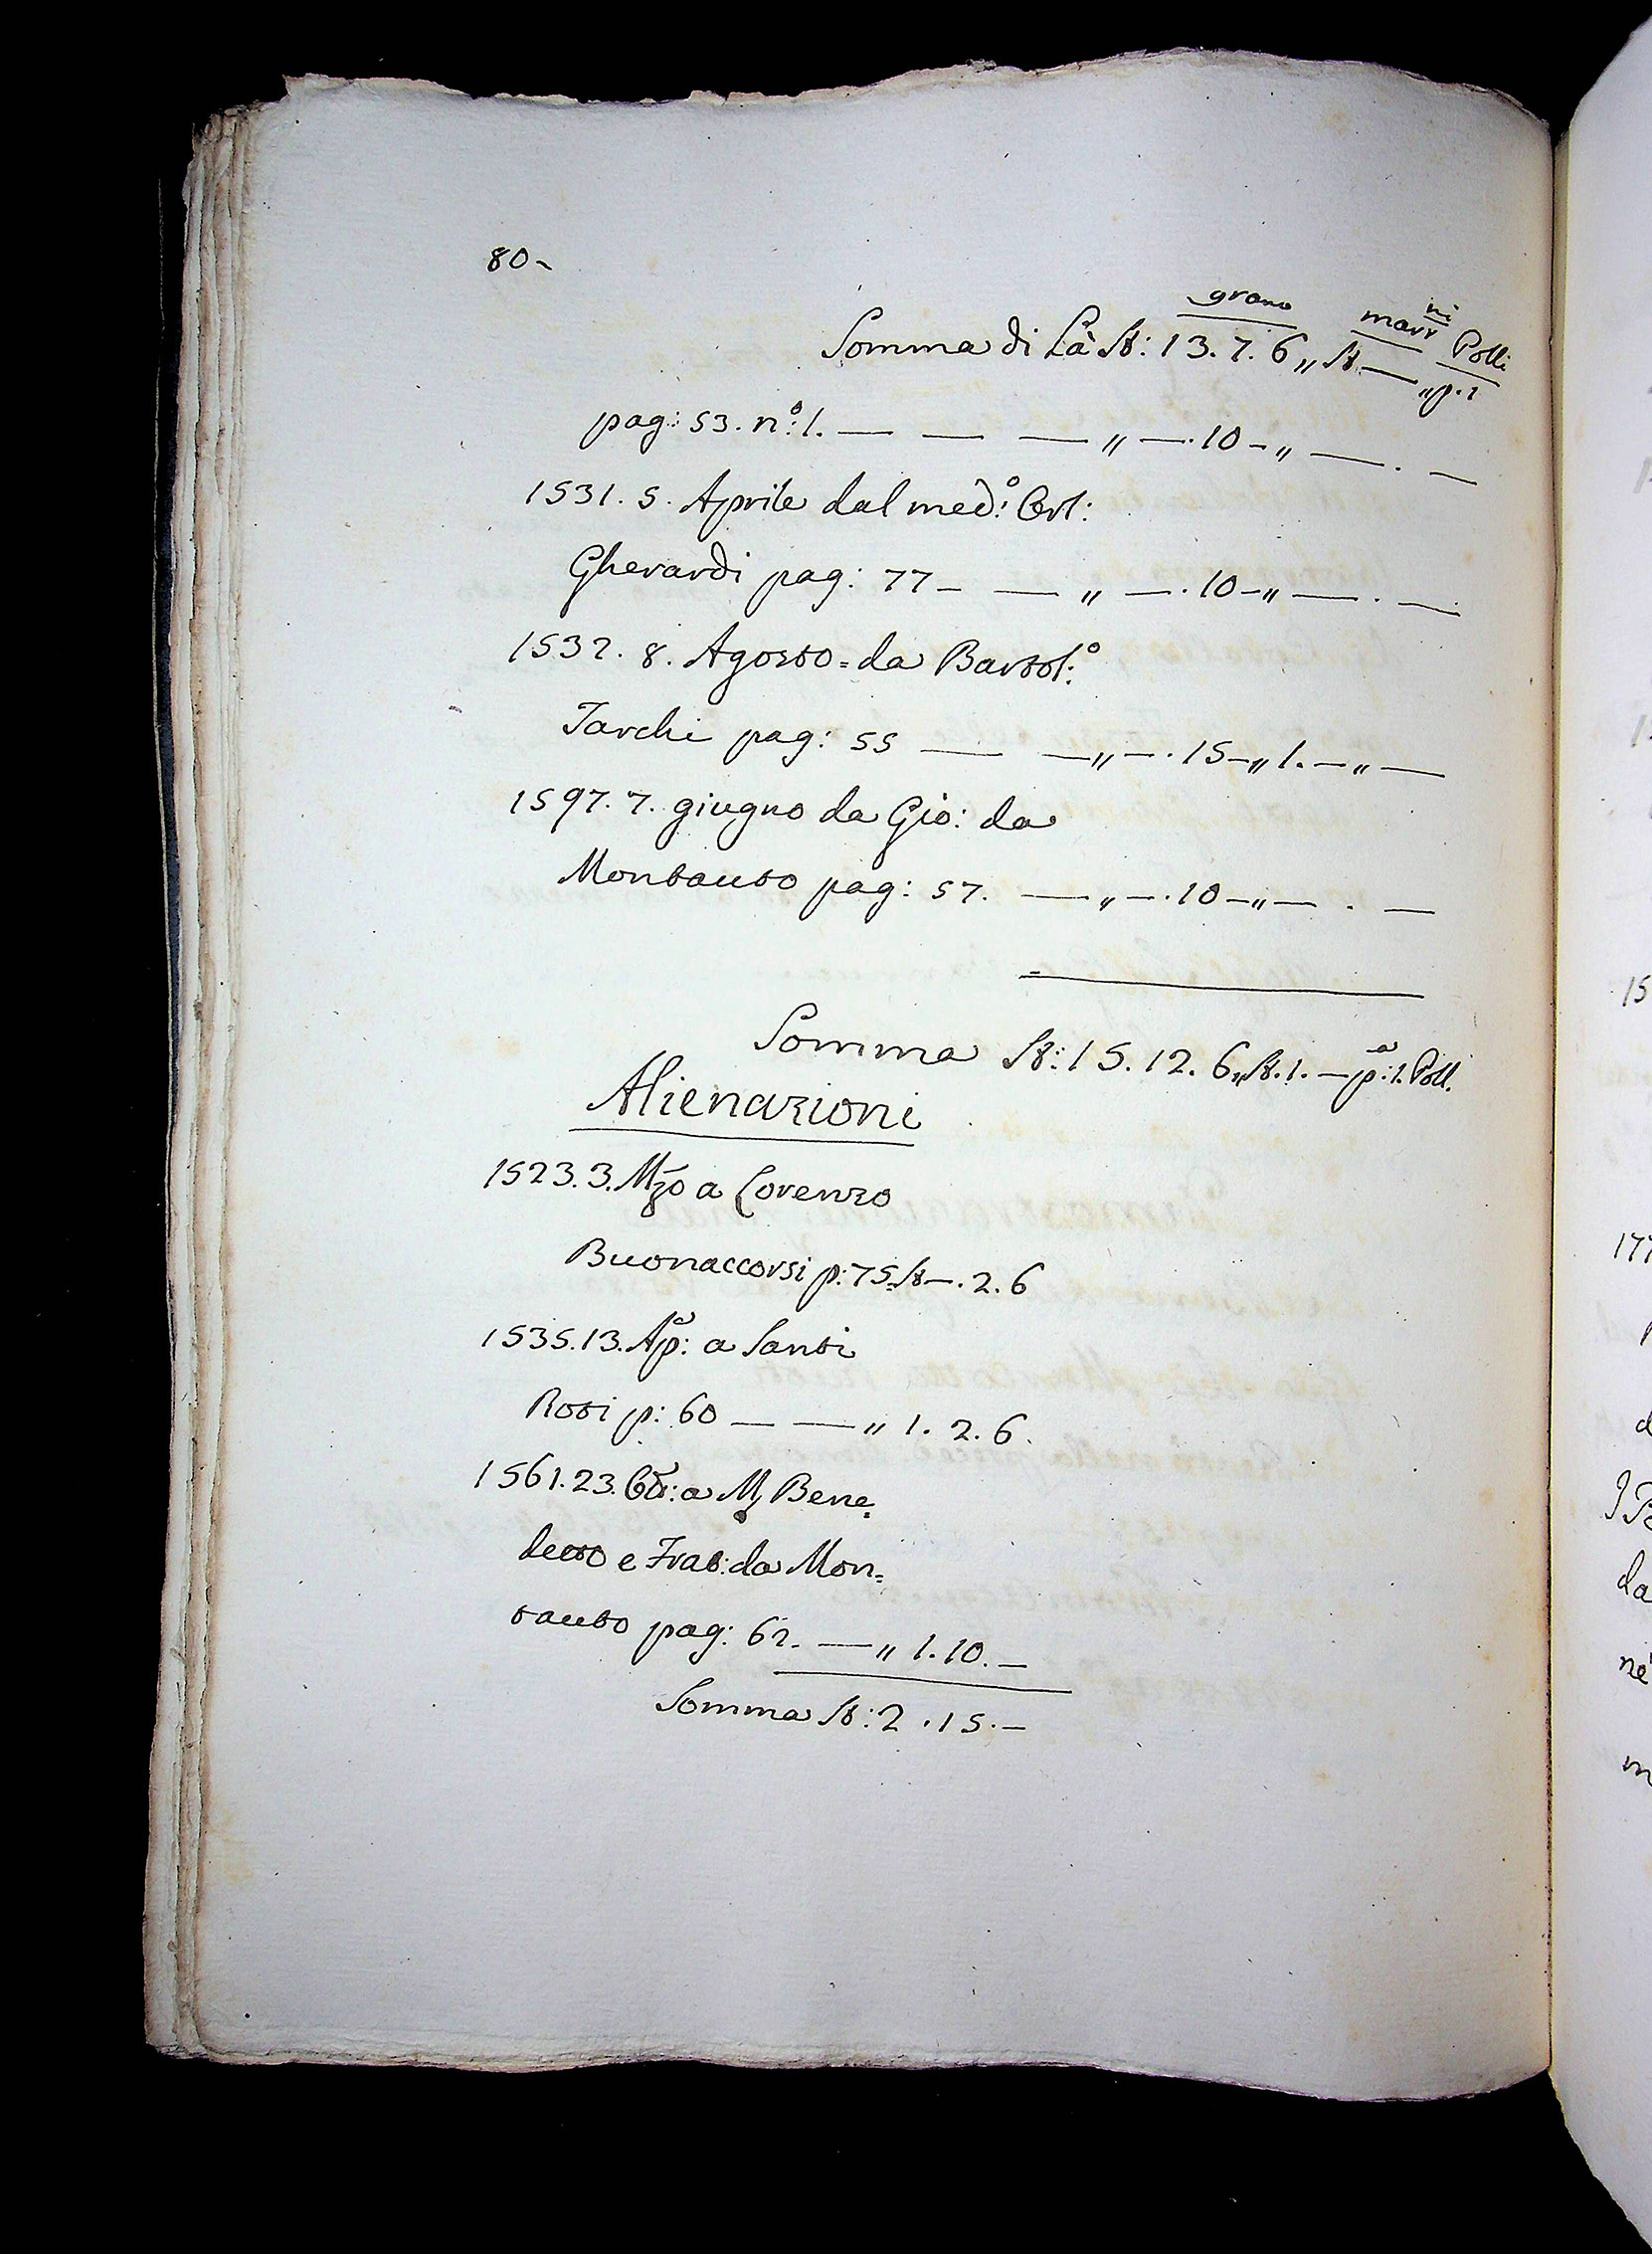 80-
grano marr.ni Polli
Somma di Là St: 13. 7. 6 „ St. — „ p. 1
pag: 53. n.o: 1. — — — „ — . 10 - „ — . —
1531. 5. Aprile dal med:o Cert:
Gherardi pag: 77 - — „ — . 10 - „ — . —
1532. 8. Agosto = da Bartol:o
Tarchi pag: 55 — — „ — . 15 - „ 1. — „ —
1597. 7. giugno da Gio: da
Montauto pag: 57. — „ — . 10 - „ — . —
Somma St: 15. 12. 6 „ St. 1. — p:a 1. Poll.
Alienazioni
1523. 3. Mzo a Lorenzo
Buonaccorsi p: 75. St — . 2. 6
1535. 13. Ap: a Santi
Rosi p: 60 — — „ 1. 2. 6.
1561. 23. a M, Bene=
detto e Frat: da Mon=
tauto pag: 62. — „ 1. 10. —
Somma St: 2 . 15. —